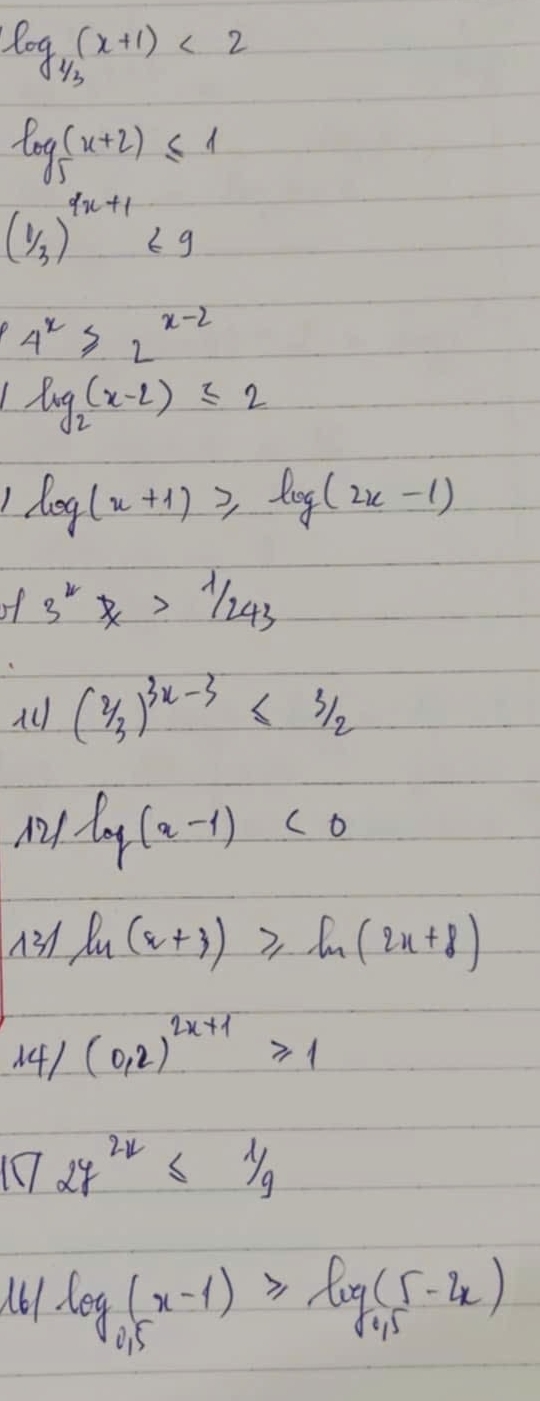 log_{1/3}(x+1) < 2
log_5(x+2) ≤ 1
(1/3)^{4x+1} ≤ 9
/ 4^x ≥ 2^{x-2}
/ log_2(x-2) ≤ 2
) log(x+1) ≥ log(2x-1)
0/ 3^x > 1/243
11) (2/3)^{3x-3} ≤ 3/2
12/ log(x-1) < 0
13/ ln(x+3) ≥ ln(2x+8)
14/ (0,2)^{2x+1} ≥ 1
15/ 27^{2x} ≤ 1/9
16/ log_{0,5}(x-1) ≥ log_{0,5}(5-2x)